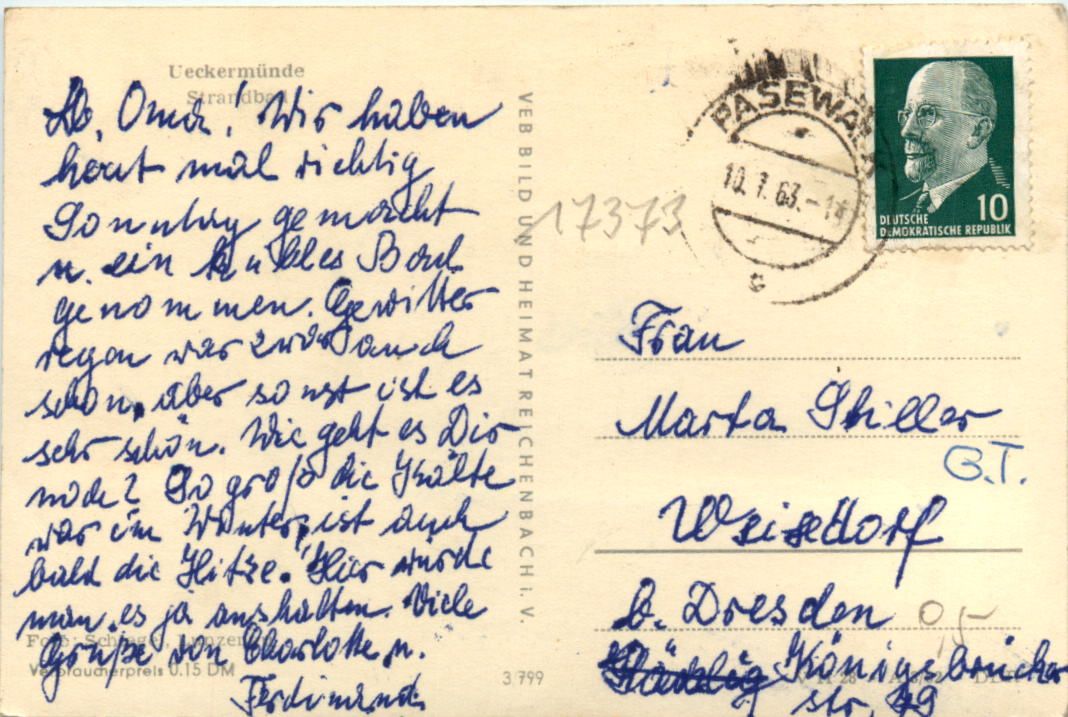 Ueckermünde
Strandbad
Lb. Oma! Wir haben
heut mal richtig
Sonntag gemacht
u. ein kühles Bad
genommen. Gewitter
regen war zwar auch
schon, aber sonst ist es
sehr schön. Wie geht es Dir
noch? So groß die Kälte
war im Winter, ist auch
bald die Hitze. Hier würde
man es ja aushalten. Viele
Grüße von Charlotte u.
Ferdinand
Verbraucherpreis 0.15 DM
3/799
VEB BILD UND HEIMAT REICHENBACH i. V.
17373
PASEWA
10.7.63.-18
c
10
DEUTSCHE
DEMOKRATISCHE REPUBLIK
Frau
Marta Stiller
G.T.
Weisdorf
b. Dresden 0,5-
Königsbrücker
str. 49